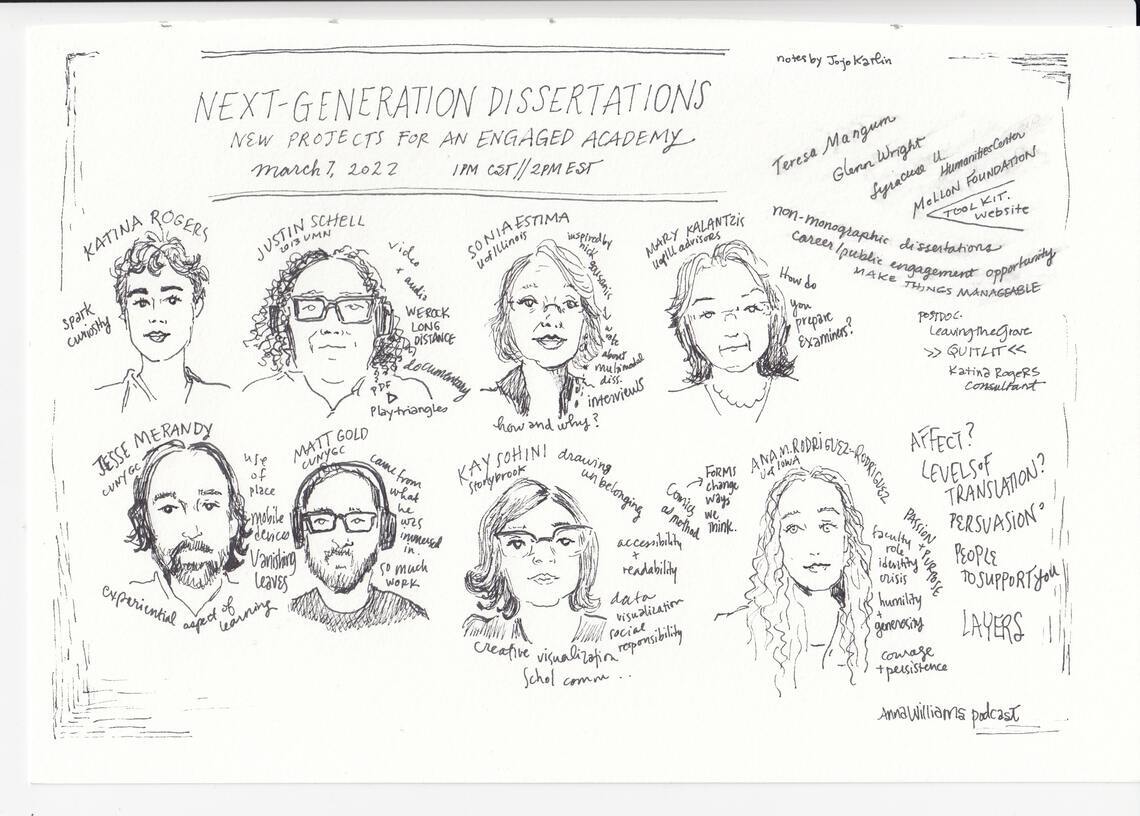 notes by Jojo Karlin
NEXT-GENERATION DISSERTATIONS
NEW PROJECTS FOR AN ENGAGED ACADEMY
March 7, 2022 1PM CST//2PM EST
Teresa Mangum
Glenn Wright
Syracuse U. Humanities Center
MELLON FOUNDATION
TOOLKIT.
website
non-monographic dissertations
career/public engagement opportunity
MAKE THINGS MANAGEABLE
POSTDOC:
Leaving the Grove
>> QUITLIT <<
Katina RogeRS
consultant
KATINA ROGERS
spark
curiosity
JUSTIN SCHELL
2013 UMN
video
+
audio
WE ROCK
LONG
DISTANCE
documentary
PDF
Play-triangles
SONIA ESTIMA
U of Illinois
inspired by
nick
a
note
about
multimodal
diss.
interviews
how and why?
MARY KALANTZIS
U of Ill advisors
How do
you
prepare
Examiners?
JESSE MERANDY
CUNY GC
use
of
place
mobile
devices
Vanishing
leaves
experiential aspect of
learning
MATT GOLD
CUNYGC
came from
what
he
was
immersed
in.
so much
work
KAY SOHINI
Stonybrook
drawing
unbelonging
Comics
as method
FORMS
change
ways
we
think.
accessibility
+
readability
data
visualization
social
responsibility
creative visualization
Schol comm ..
ANA M. RODRIGUEZ-RODRIGUEZ
U of IOWA
PASSION + PURPOSE
faculty
role
identity
crisis
humility
+
generosity
courage
+ persistence
AFFECT?
LEVELS of
TRANSLATION?
PERSUASION?
PEOPLE
TO SUPPORT you
LAYERS
Anna Williams podcast